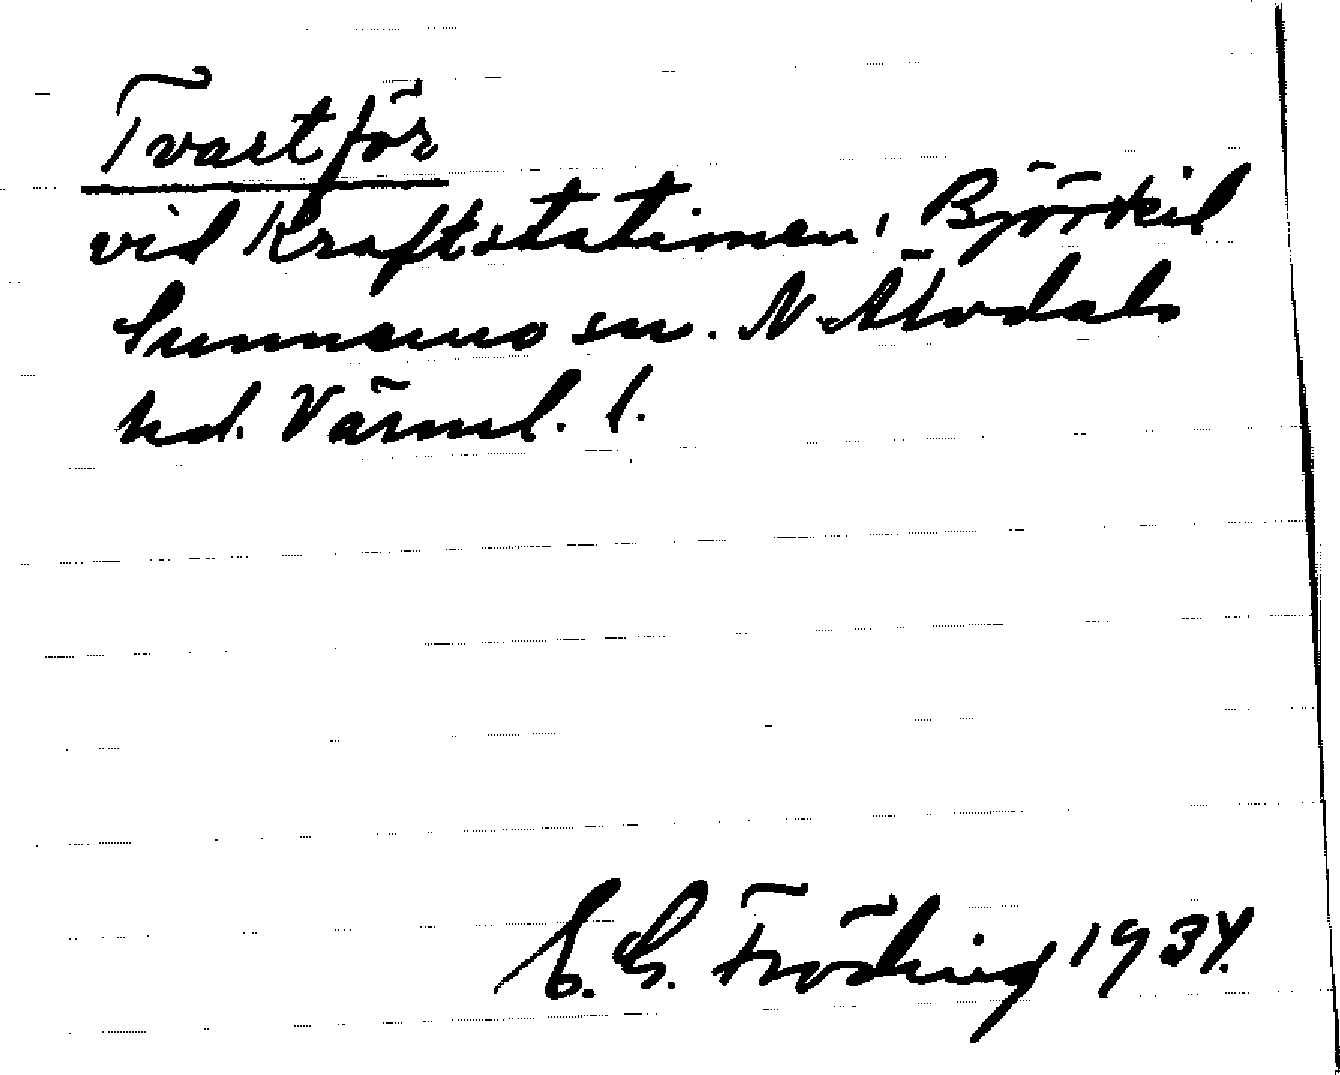 Tvärtför
vid Kraftstationen, Björkil
Sunnemo sn. N. Älvdals
hd. Värml. l.
E. G. Fröding 1934.